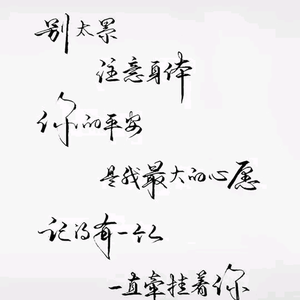 别太累
注意身体
你的平安
是我最大的心愿
记得有一个人
一直牵挂着你